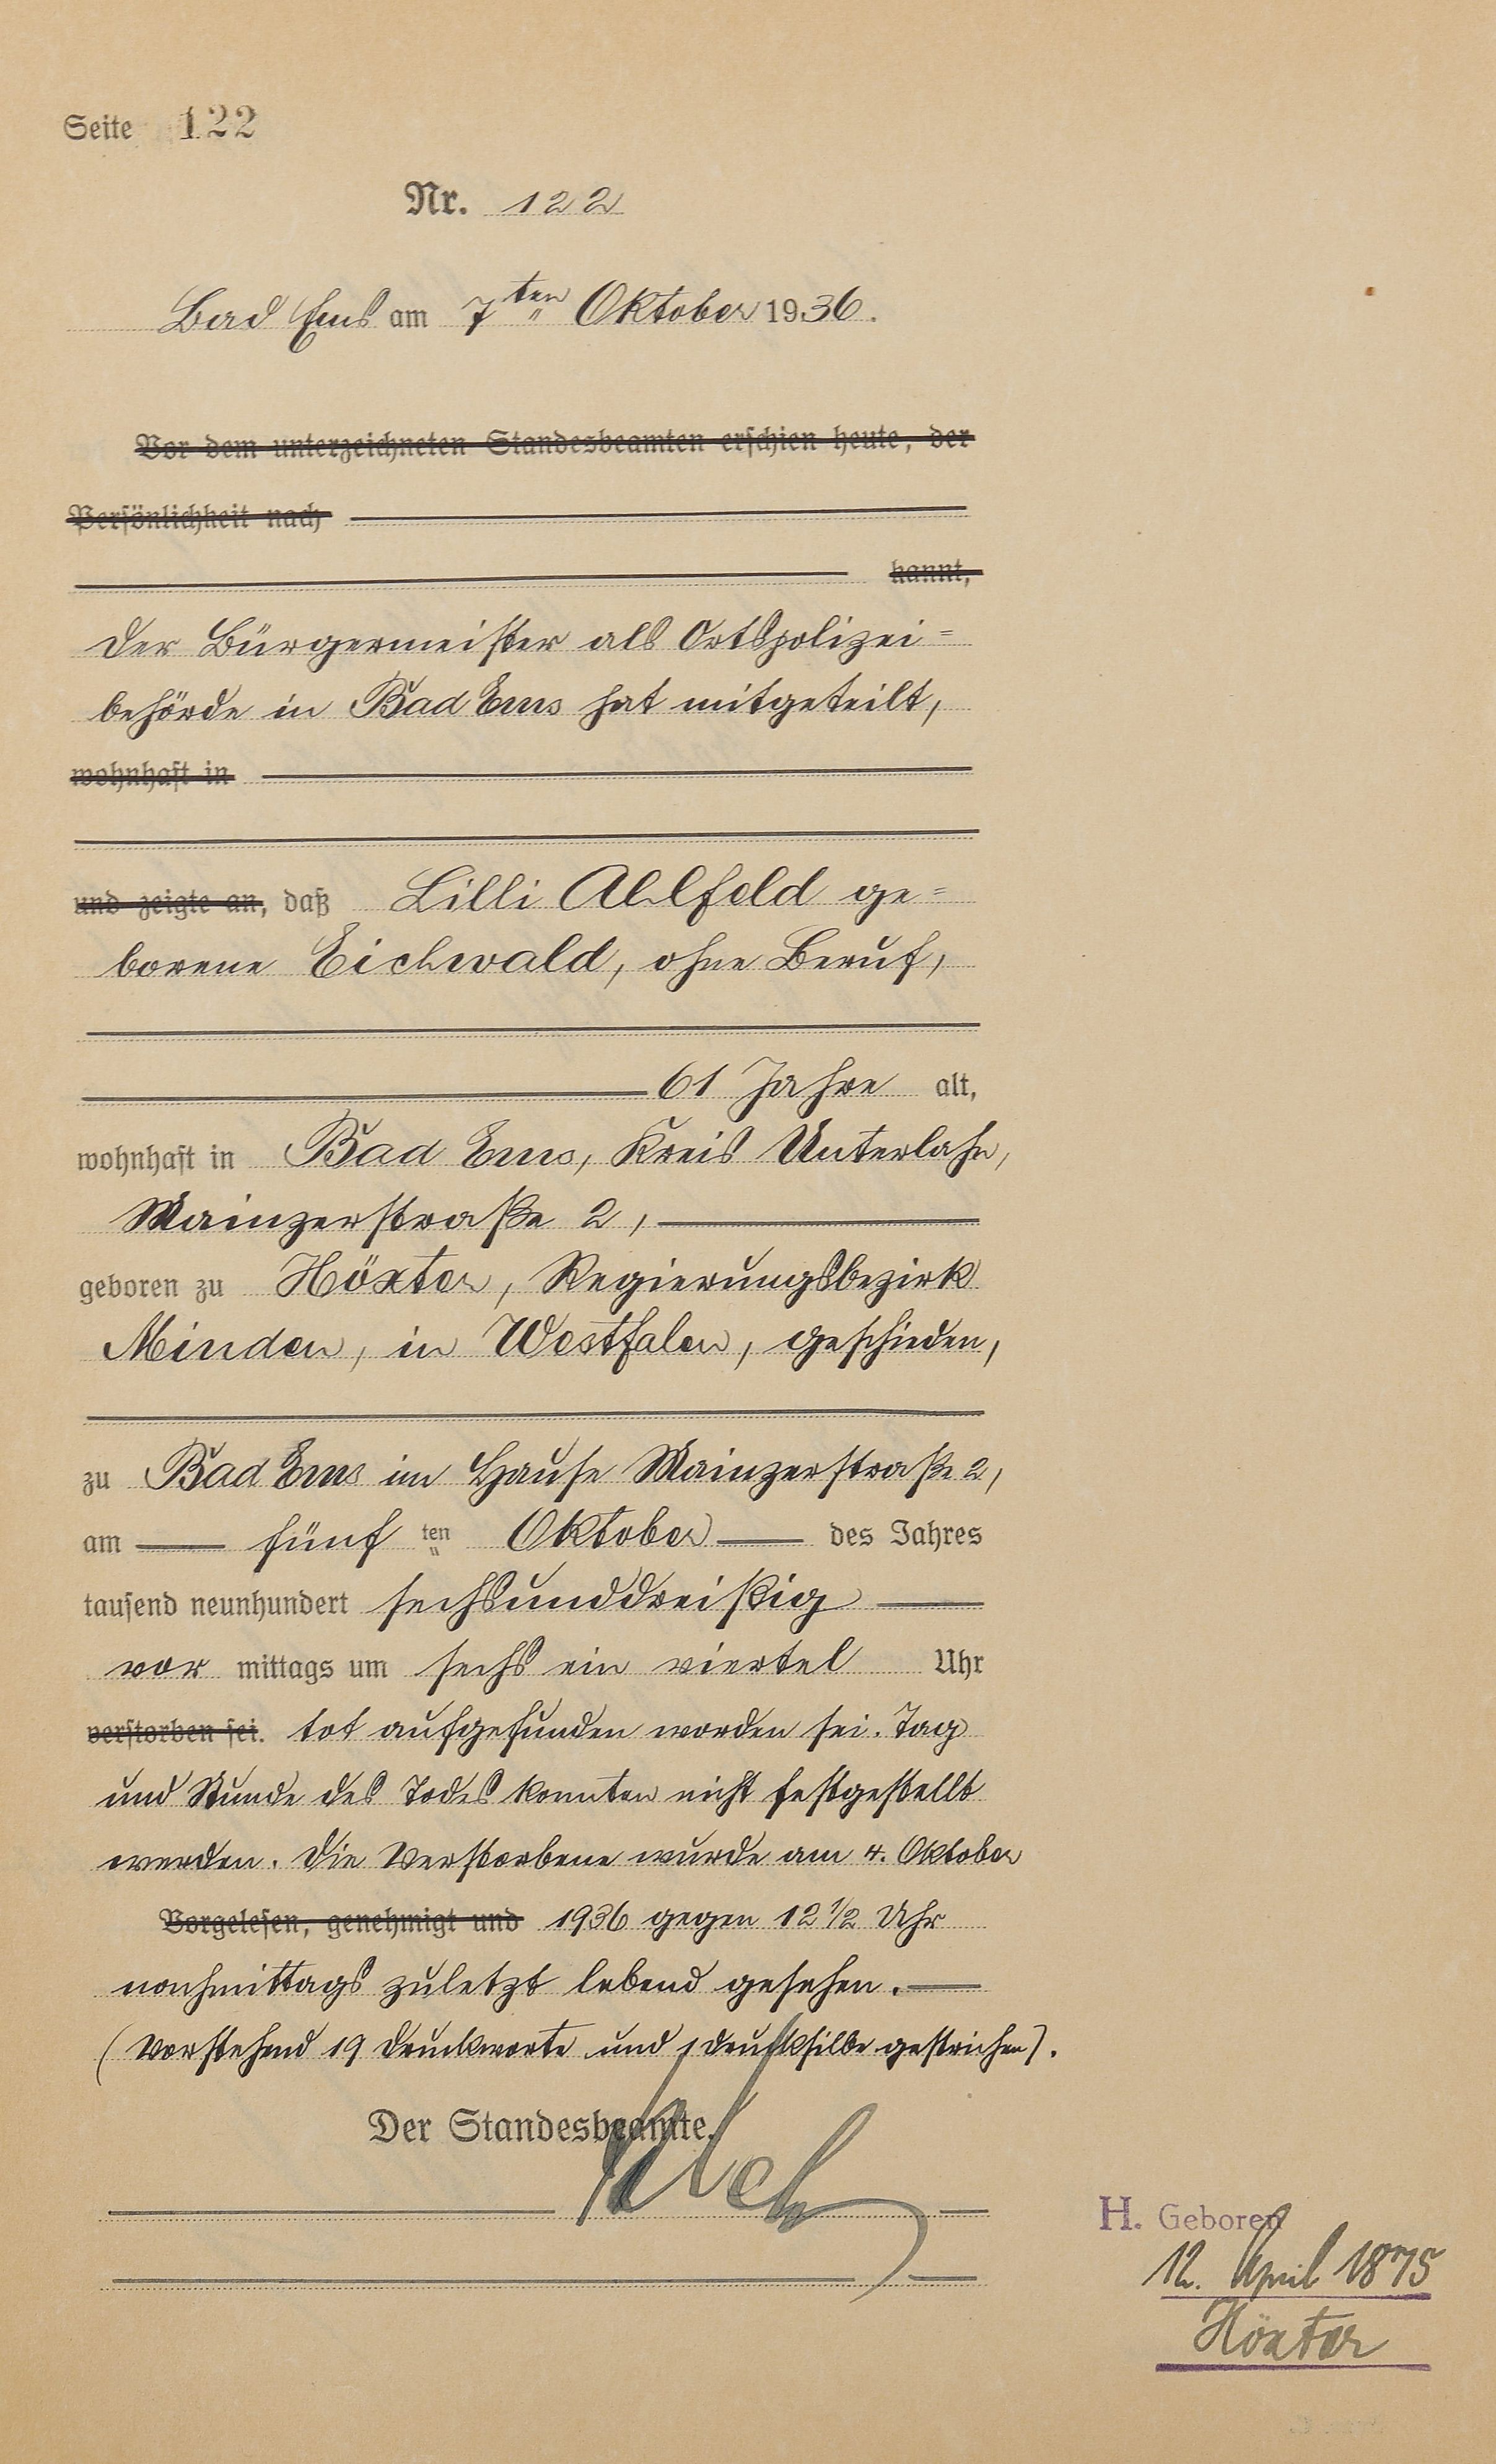 Seite 122
Nr. 122
Bad Ems am 7ten Oktober 1936.
Vor dem unterzeichneten Standesbeamten erschien heute, der
Persönlichkeit nach
kannt,
Der Bürgermeister als Ortspolizei=
behörde in Bad Ems hat mitgeteilt,
wohnhaft in
und zeigte an, daß Lilli Ahlfeld ge=
borene Eichwald, ohne Beruf,
61 Jahre alt,
wohnhaft in Bad Ems, Kreis Unterlahn,
Mainzerstraße 2,
geboren zu Höxter, Regierungsbezirk
Minden, in Westfalen, geschieden,
zu Bad Ems im Hause Mainzerstraße 2,
am fünf ten Oktober des Jahres
tausend neunhundert sechsunddreißig
vor mittags um sechs ein viertel Uhr
verstorben sei. tot aufgefunden worden sei. Tag
und Stunde des Todes konnten nicht festgestellt
werden. Die Verstorbene wurde am 4. Oktober
Vorgelesen, genehmigt und 1936 gegen 12 1/2 Uhr
nachmittags zuletzt lebend gesehen.
(Vorstehend 19 Druckworte und 1 Drucksilbe gestrichen).
Der Standesbeamte.
H. Geboren
12. April 1875
Höxter